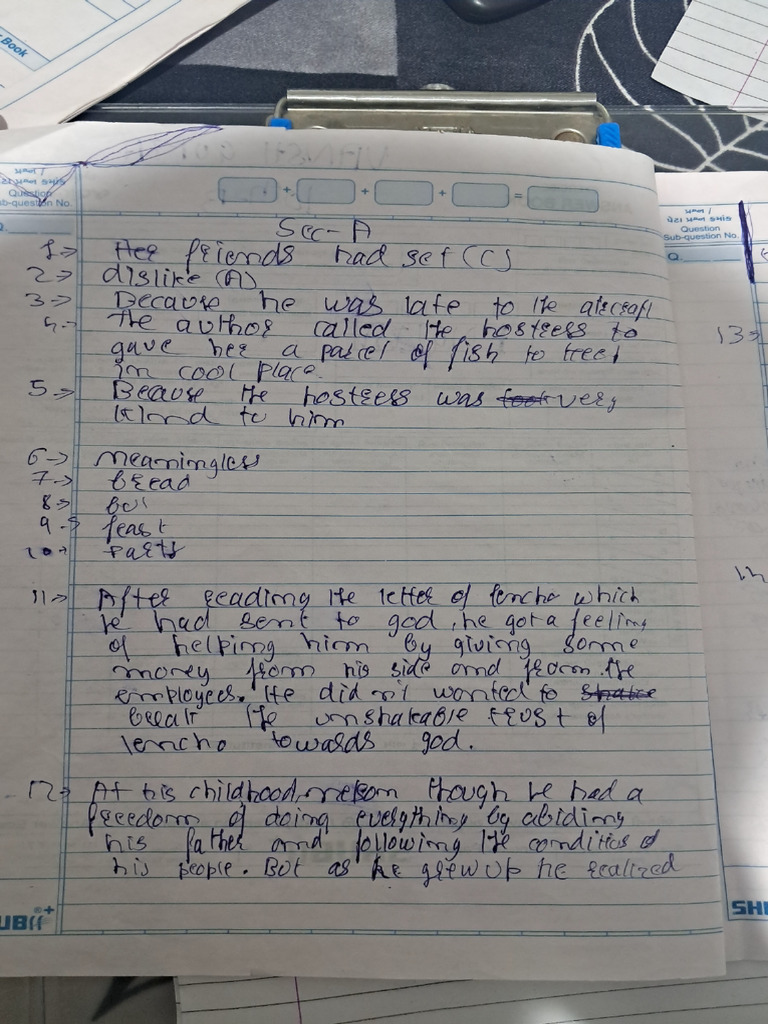 Book
પ્રશ્ન /
પેટા પ્રશ્ન ક્રમાંક
Question
Sub-question No.
Q.
+ + + =
Sec-A
1→ Her friends had set (C)
2→ dislike (A)
3→ Because he was late to the aircraft
4→ The author called the hostress to
gave her a parcel of fish to
in cool place.
5→ Because the hostress was very
kind to him
6→ meaningless
7→ bread
8→ but
9→ feast
10→ parts
11→ After reading the letter of lencho which
he had sent to god, he got a feeling
of helping him by giving some
money from his side and from the
employees. He did n't wanted to
break the unshakable trust of
lencho towards god.
12→ At his childhood, though he had a
freedom of doing everything by abiding
his father and following the condities of
his people. But as he grew up he realized
પ્રશ્ન /
પેટા પ્રશ્ન ક્રમાંક
Question
Sub-question No.
Q.
13→